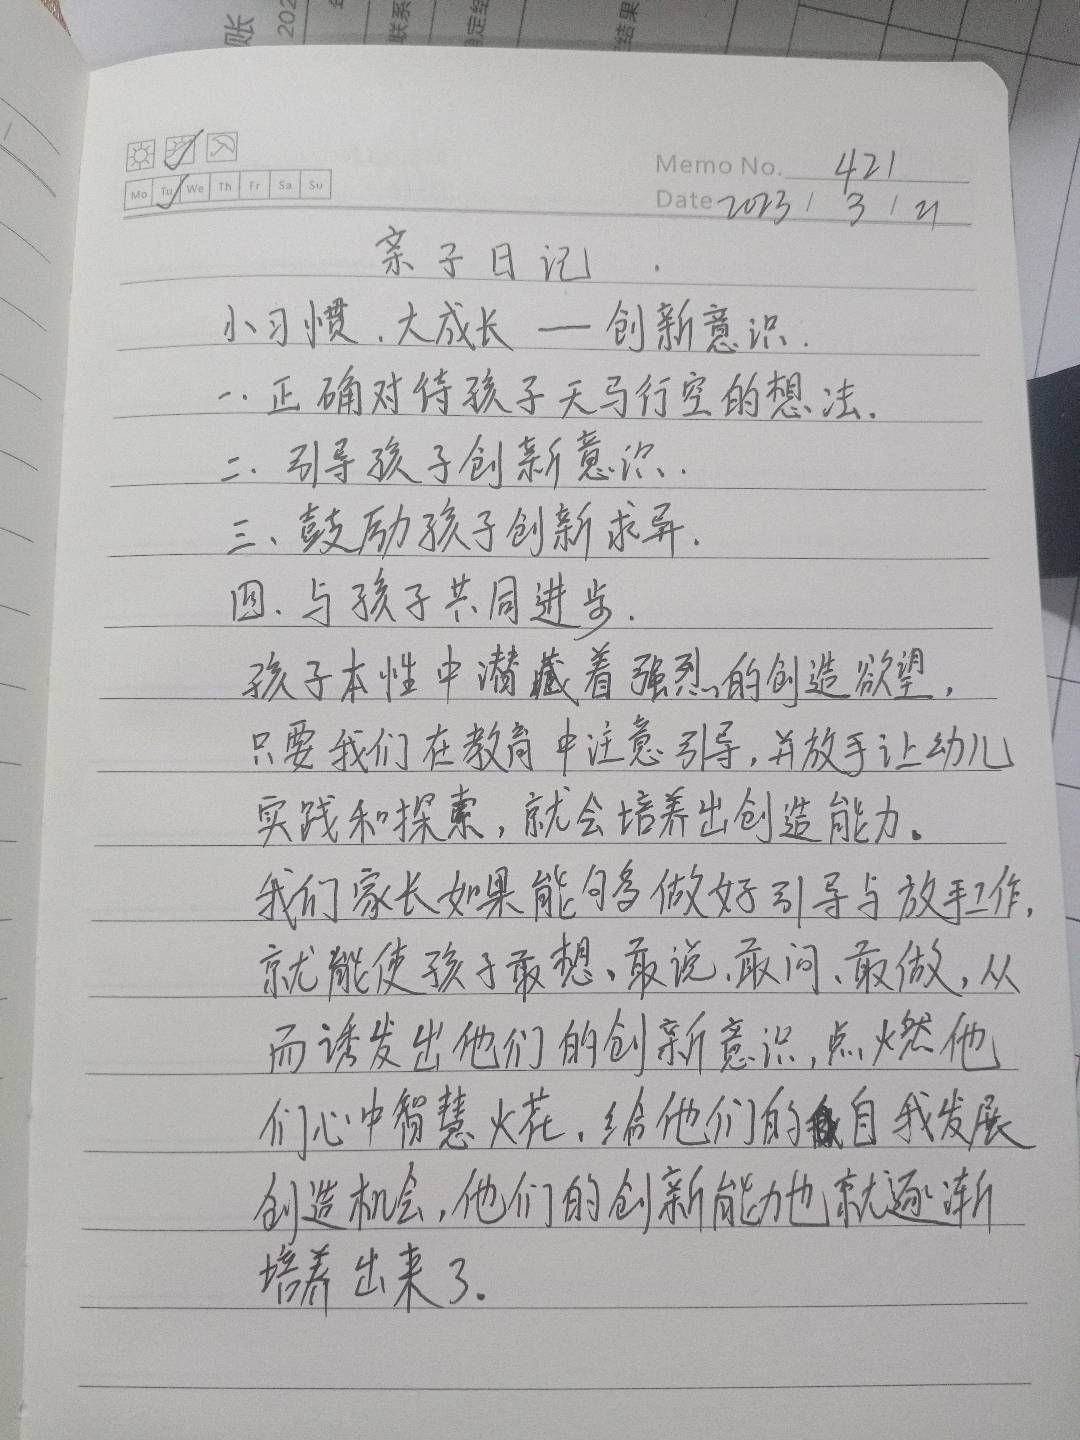 账
202
联系
结果
Memo No. 421
Mo Tu We Th Fr Sa Su
Date 2023 / 3 / 21
亲子日记.
小习惯.大成长 — 创新意识.
一.正确对待孩子天马行空的想法.
二.引导孩子创新意识.
三、鼓励孩子创新求异.
四.与孩子共同进步.
孩子本性中潜藏着强烈的创造欲望,
只要我们在教育中注意引导,并放手让幼儿
实践和探索,就会培养出创造能力。
我们家长如果能够多做好引导与放手工作,
就能使孩子敢想、敢说、敢问、敢做,从
而诱发出他们的创新意识,点燃他
们心中智慧火花.给他们的自我发展
创造机会,他们的创新能力也就逐渐
培养出来了.